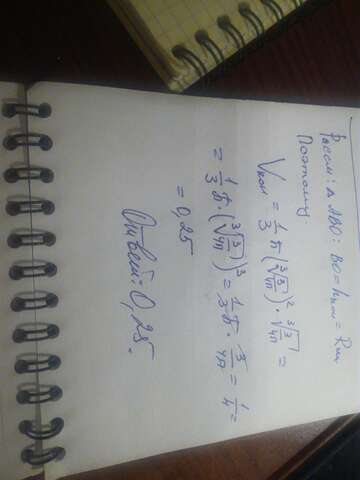 Рассм: △ ABO: BO = hкон = Rш
Поэтому:
Vкон = 1/3 π (∛(3/4π))² · ∛(3/4π) =
= 1/3 π · (∛(3/4π))³ = 1/3 π · 3/4π = 1/4 =
= 0,25
Ответ: 0,25.